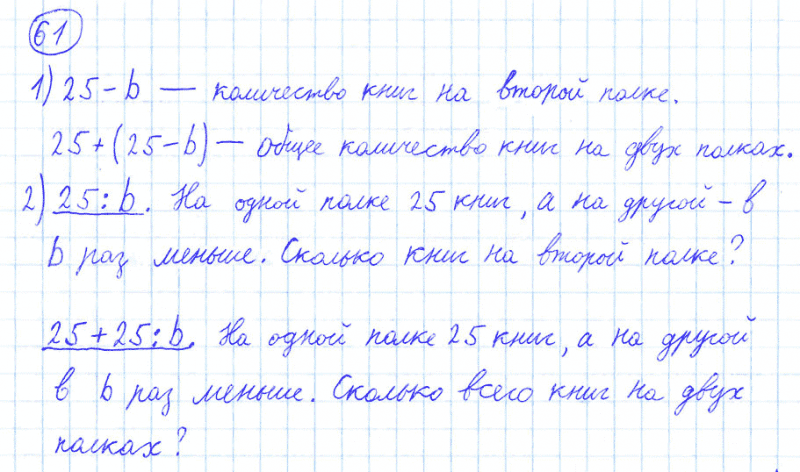 61
1) 25 - b — количество книг на второй полке.
25 + (25 - b) — общее количество книг на двух полках.
2) 25 : b. На одной полке 25 книг, а на другой - в
b раз меньше. Сколько книг на второй полке?
25 + 25 : b. На одной полке 25 книг, а на другой
в b раз меньше. Сколько всего книг на двух
полках?